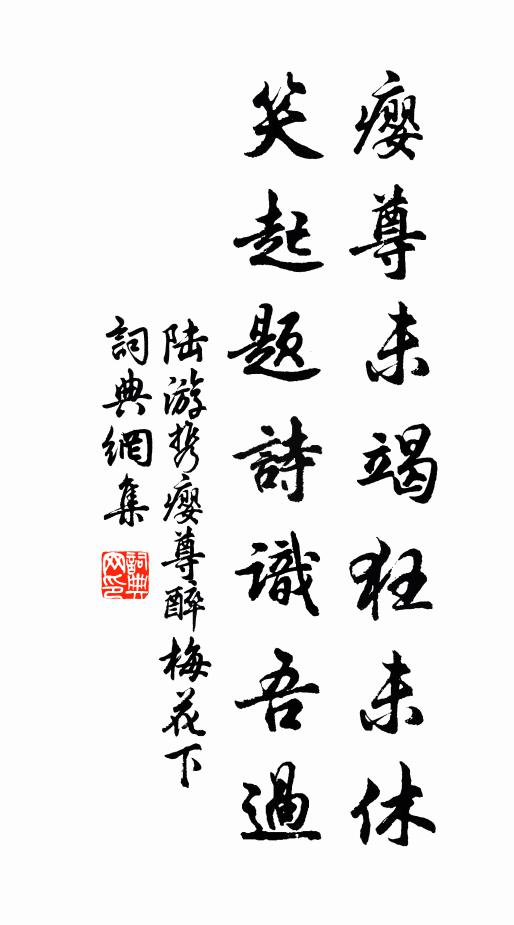 癭尊未竭狂未休
笑起題詩識吾過
陆游携癭尊醉梅花下
詞典網集
詞典网印